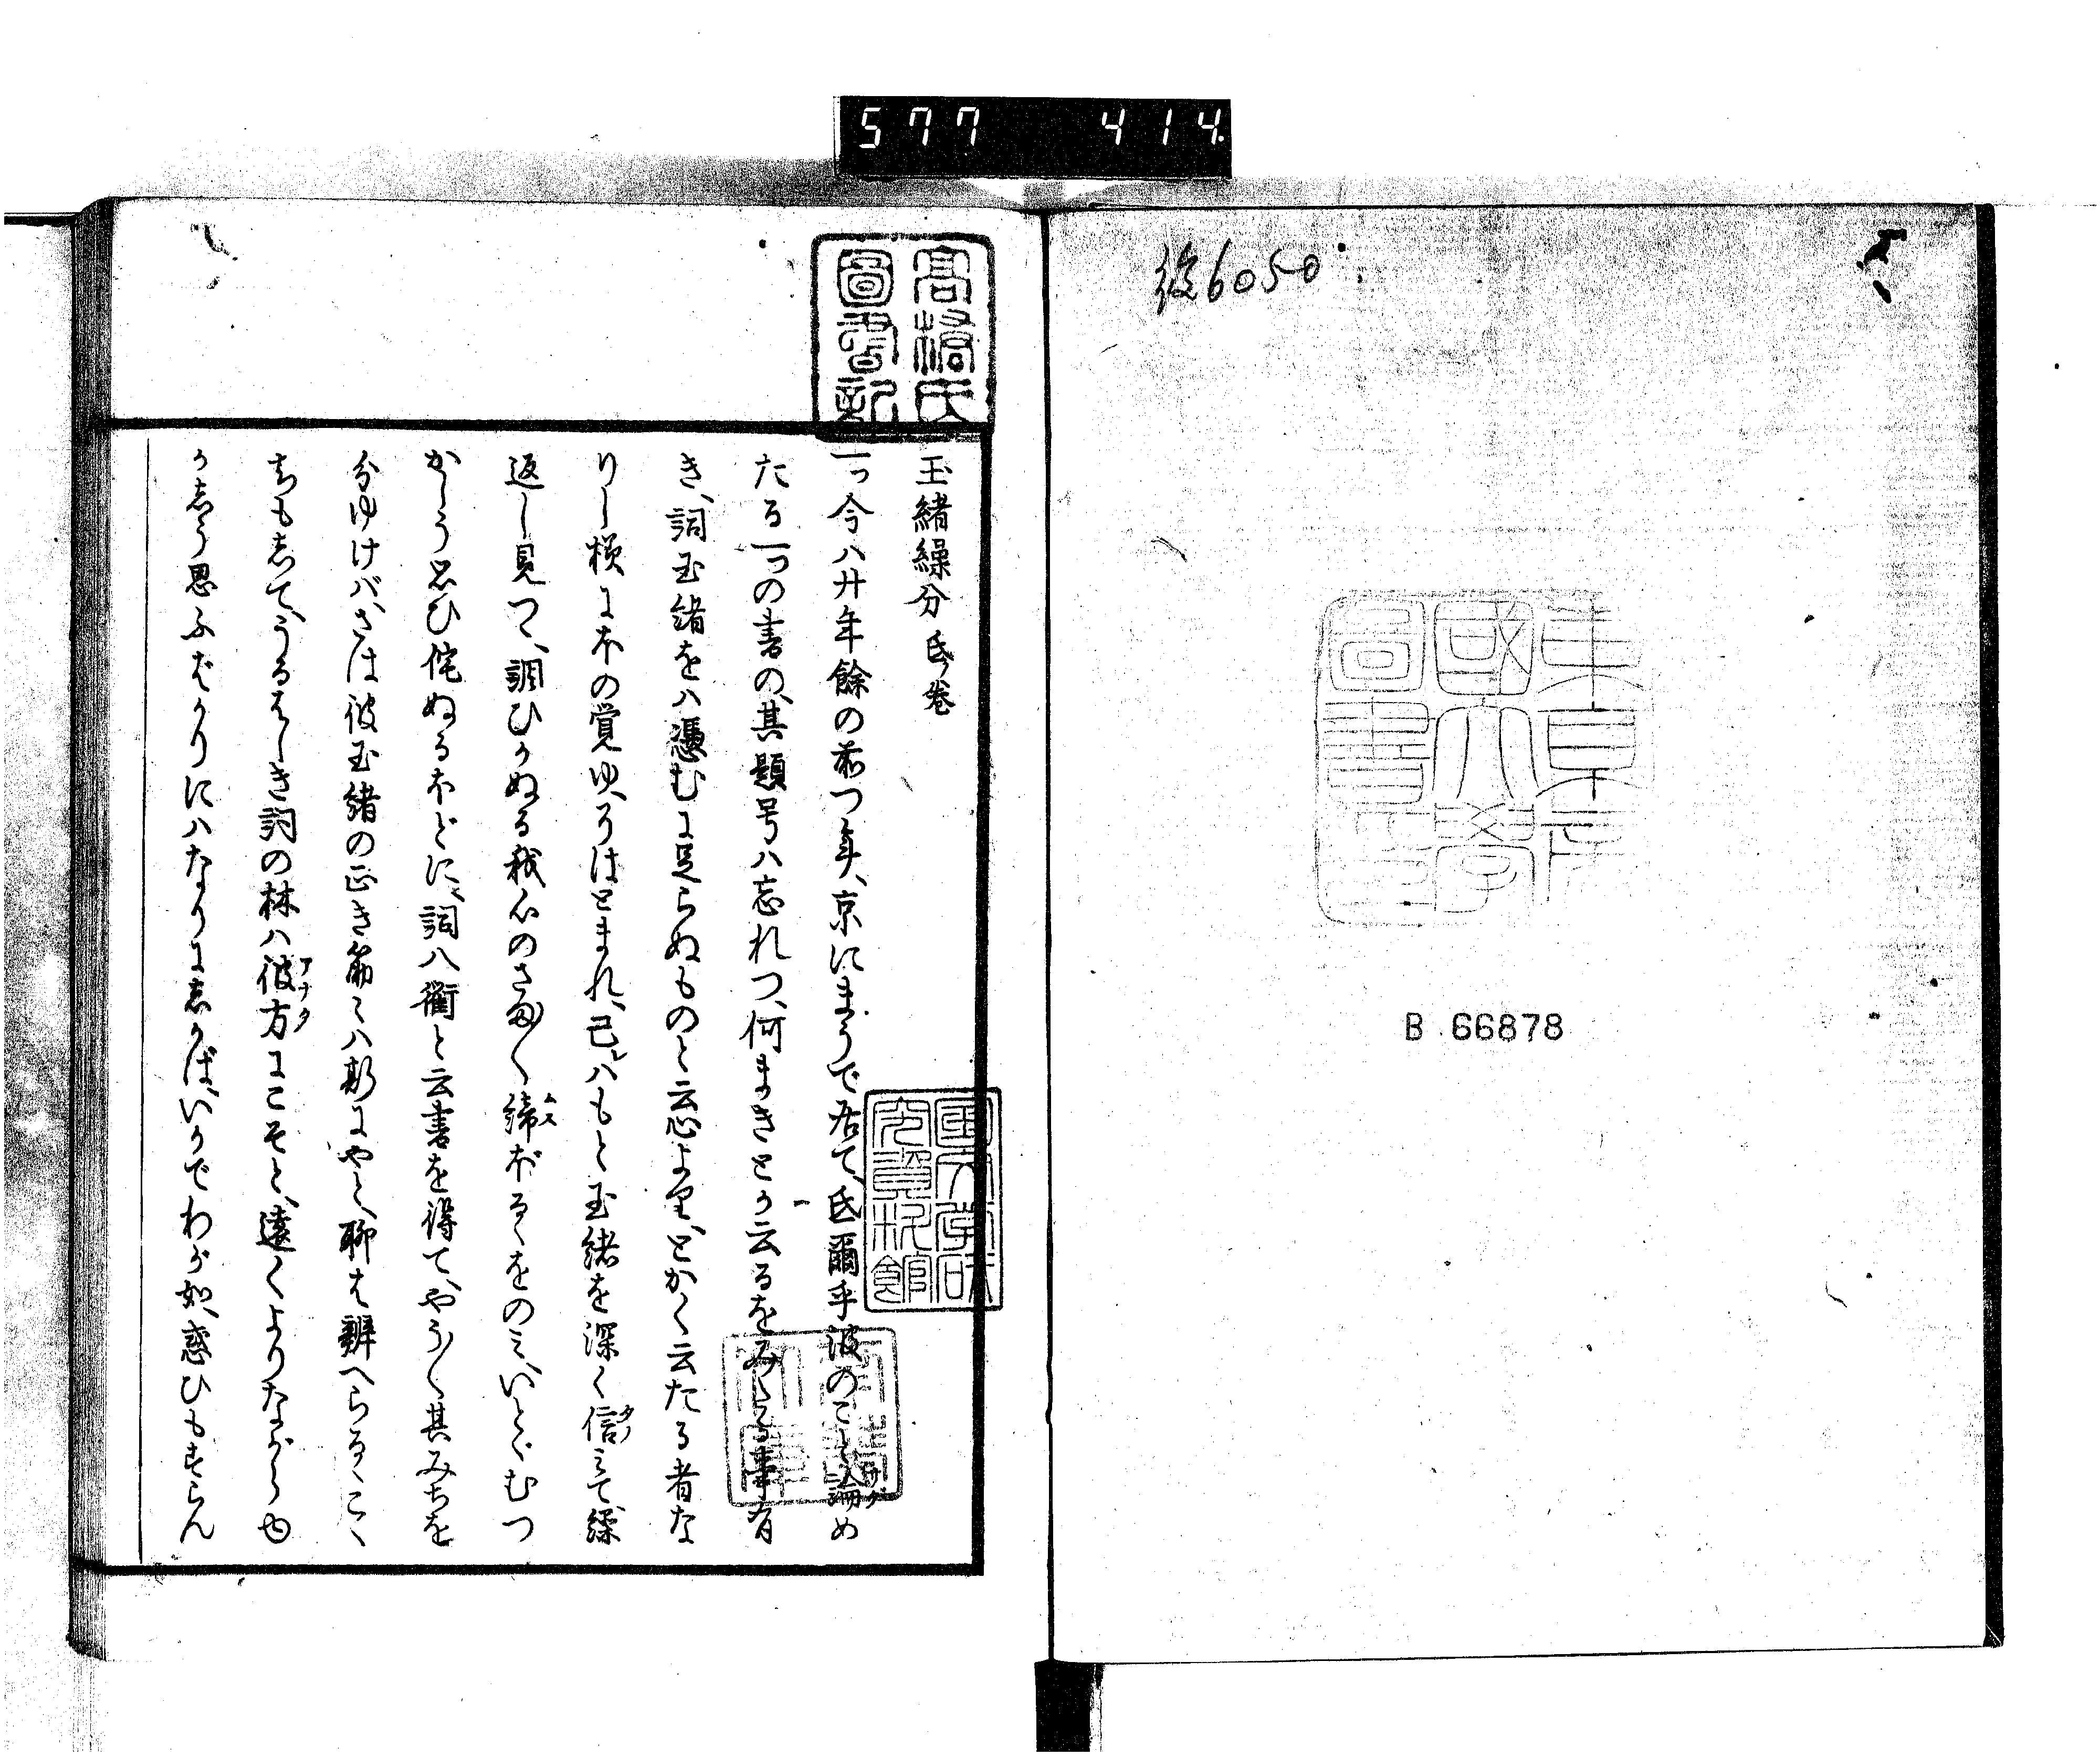 577 414.
後6050
東京
國大學
圖書
B 66878
高橋氏
圖書記
玉緒繰分 氐ノ卷
一つ今ハ廿年餘の前つ年、京にまうで居て、氐爾乎波のこと論め
たる一つの書の、其題号ハ忘れつ、何まきとか云るをみたる事有
き、詞玉緒をハ憑むに足らぬものと云心より、とかく云たる者な
りし様にホの覚ゆ、そはとまれ、己ハもと玉緒を深く信みて繰
返し見つゝ、調ひかぬる我心のさまく締ぼるゝをのミ、いとゞむつ
かしう思ひ侘ぬるホどに、詞八衢と云書を得て、やう〱其みちを
分ゆけバ、さは彼玉緒の正き筋ミハ斯にやと、聊は辨へらるゝこゝ
ちもして、うるはしき詞の林ハ彼方にこそと、遠くよりながら也
かしう思ふばかりにハなりにしかば、いかでわが如、惑ひもすらん